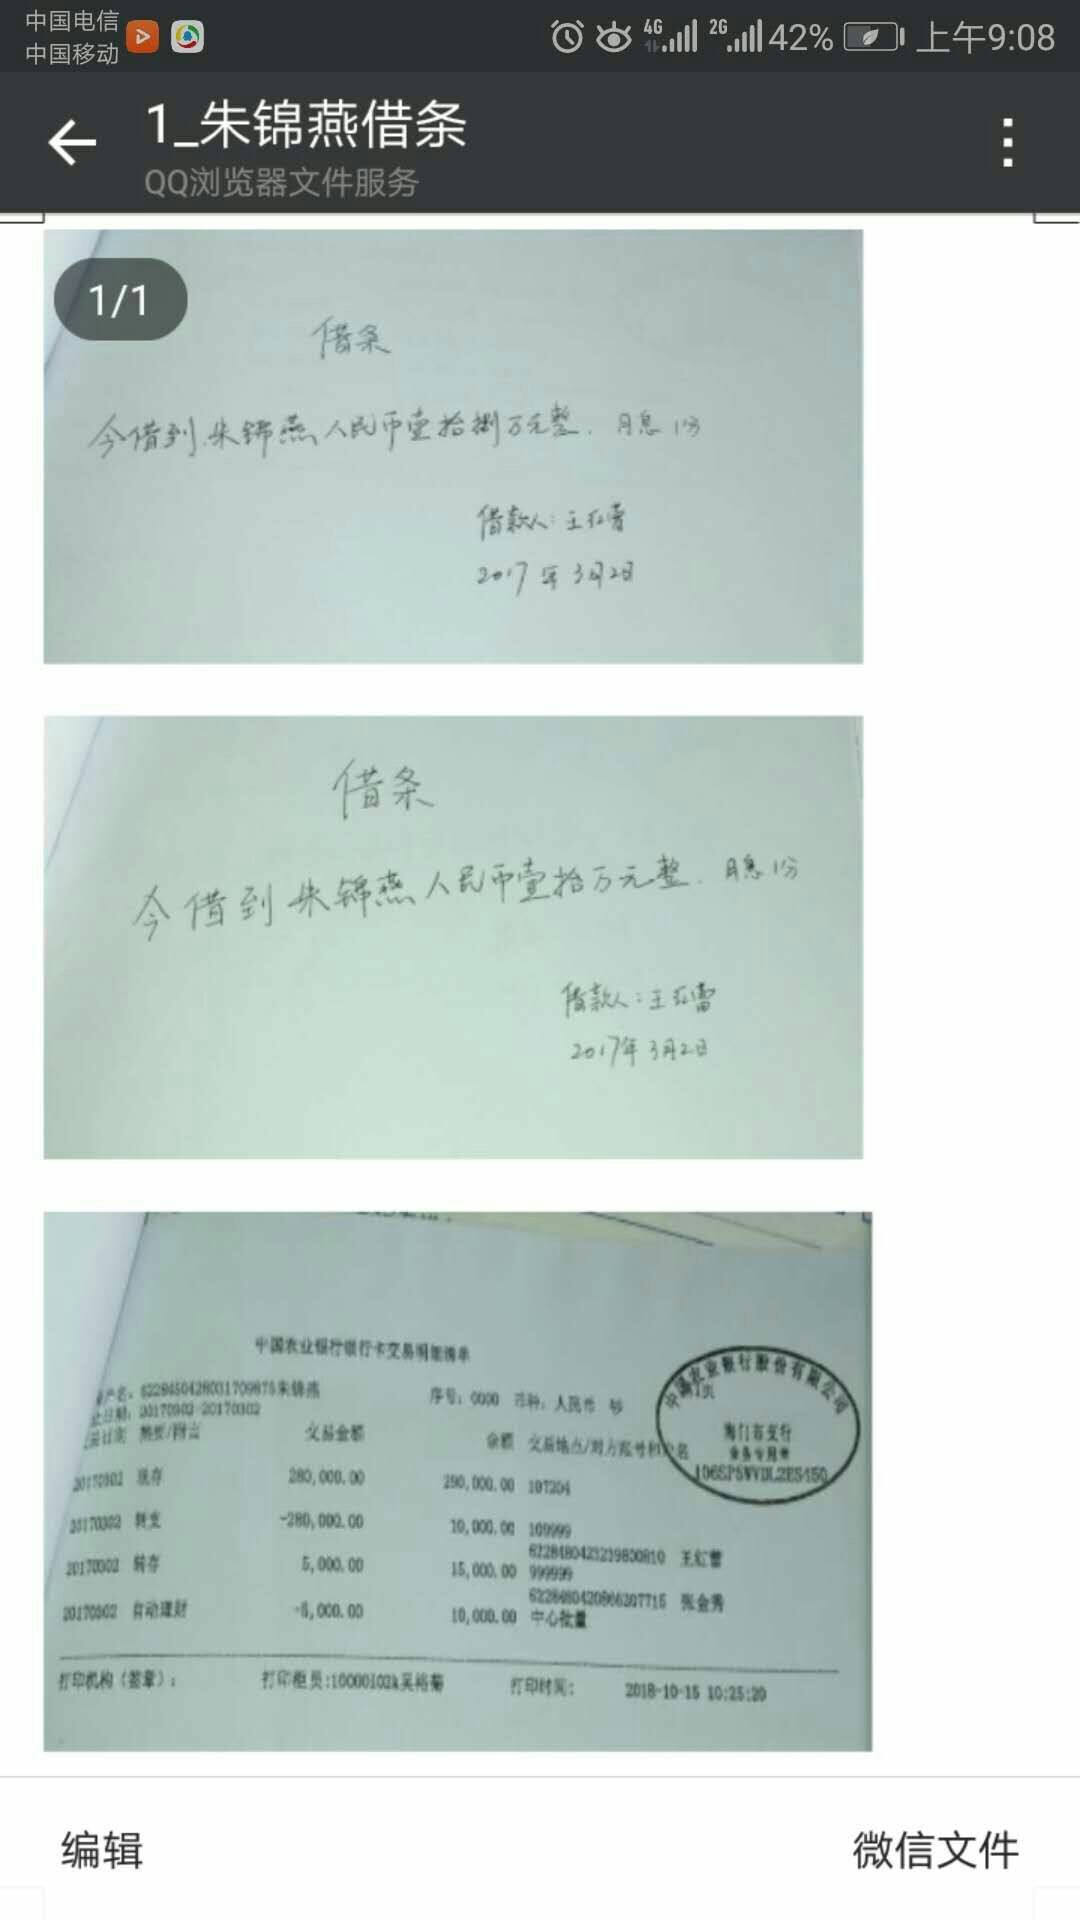 中国电信
中国移动
4G 2G 42% 上午9:08
1_朱锦燕借条
QQ浏览器文件服务
1/1
借条
今借到朱锦燕人民币壹拾捌万元整. 月息1分
借款人:王红蕾
2017年3月2日
借条
今借到朱锦燕人民币壹拾万元整. 月息1分
借款人:王红蕾
2017年3月2日
中国农业银行银行卡交易明细清单
中国农业银行股份有限公司
海门市支行
业务专用章
户名: 朱锦燕 序号: 0000 币种: 人民币 钞
日期: 20170302-20170302
摘要/附言 交易金额 余额 交易地点/对方账号和户名
20170302 现存 280,000.00 290,000.00 107204
20170302 转支 -280,000.00 10,000.00 109999
王红蕾
20170302 转存 5,000.00 15,000.00 999999
张金秀
20170302 自动理财 -5,000.00 10,000.00 中心批量
打印机构(签章): 打印柜员: 打印时间: 2018-10-15 10:25:20
编辑 微信文件